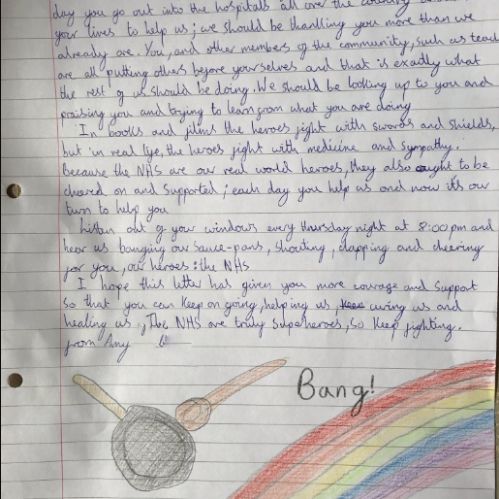 day you go out into the hospitals all over the country
your lives to help us; we should be thanking you more than we
already are. You, and other members of the community, such as teac
are all putting others before yourselves and that is exactly what
the rest of us should be doing. We should be looking up to you and
praising you and trying to learn from what you are doing
In books and films the heroes fight with swords and shields,
but in real life, the heroes fight with medicine and sympathy.
Because the NHS are our real world heroes, they also ought to be
cheered on and supported; each day you help us and now it's our
turn to help you
Listen out of your windows every thursday night at 8:00pm and
hear us banging our sauce-pans, shouting, clapping and cheering
for you, our heroes: the NHS
I hope this letter has given you more courage and support
so that you can keep on going, helping us, curing us and
healing us. The NHS are truly superheroes, so keep fighting.
from Amy
Bang!